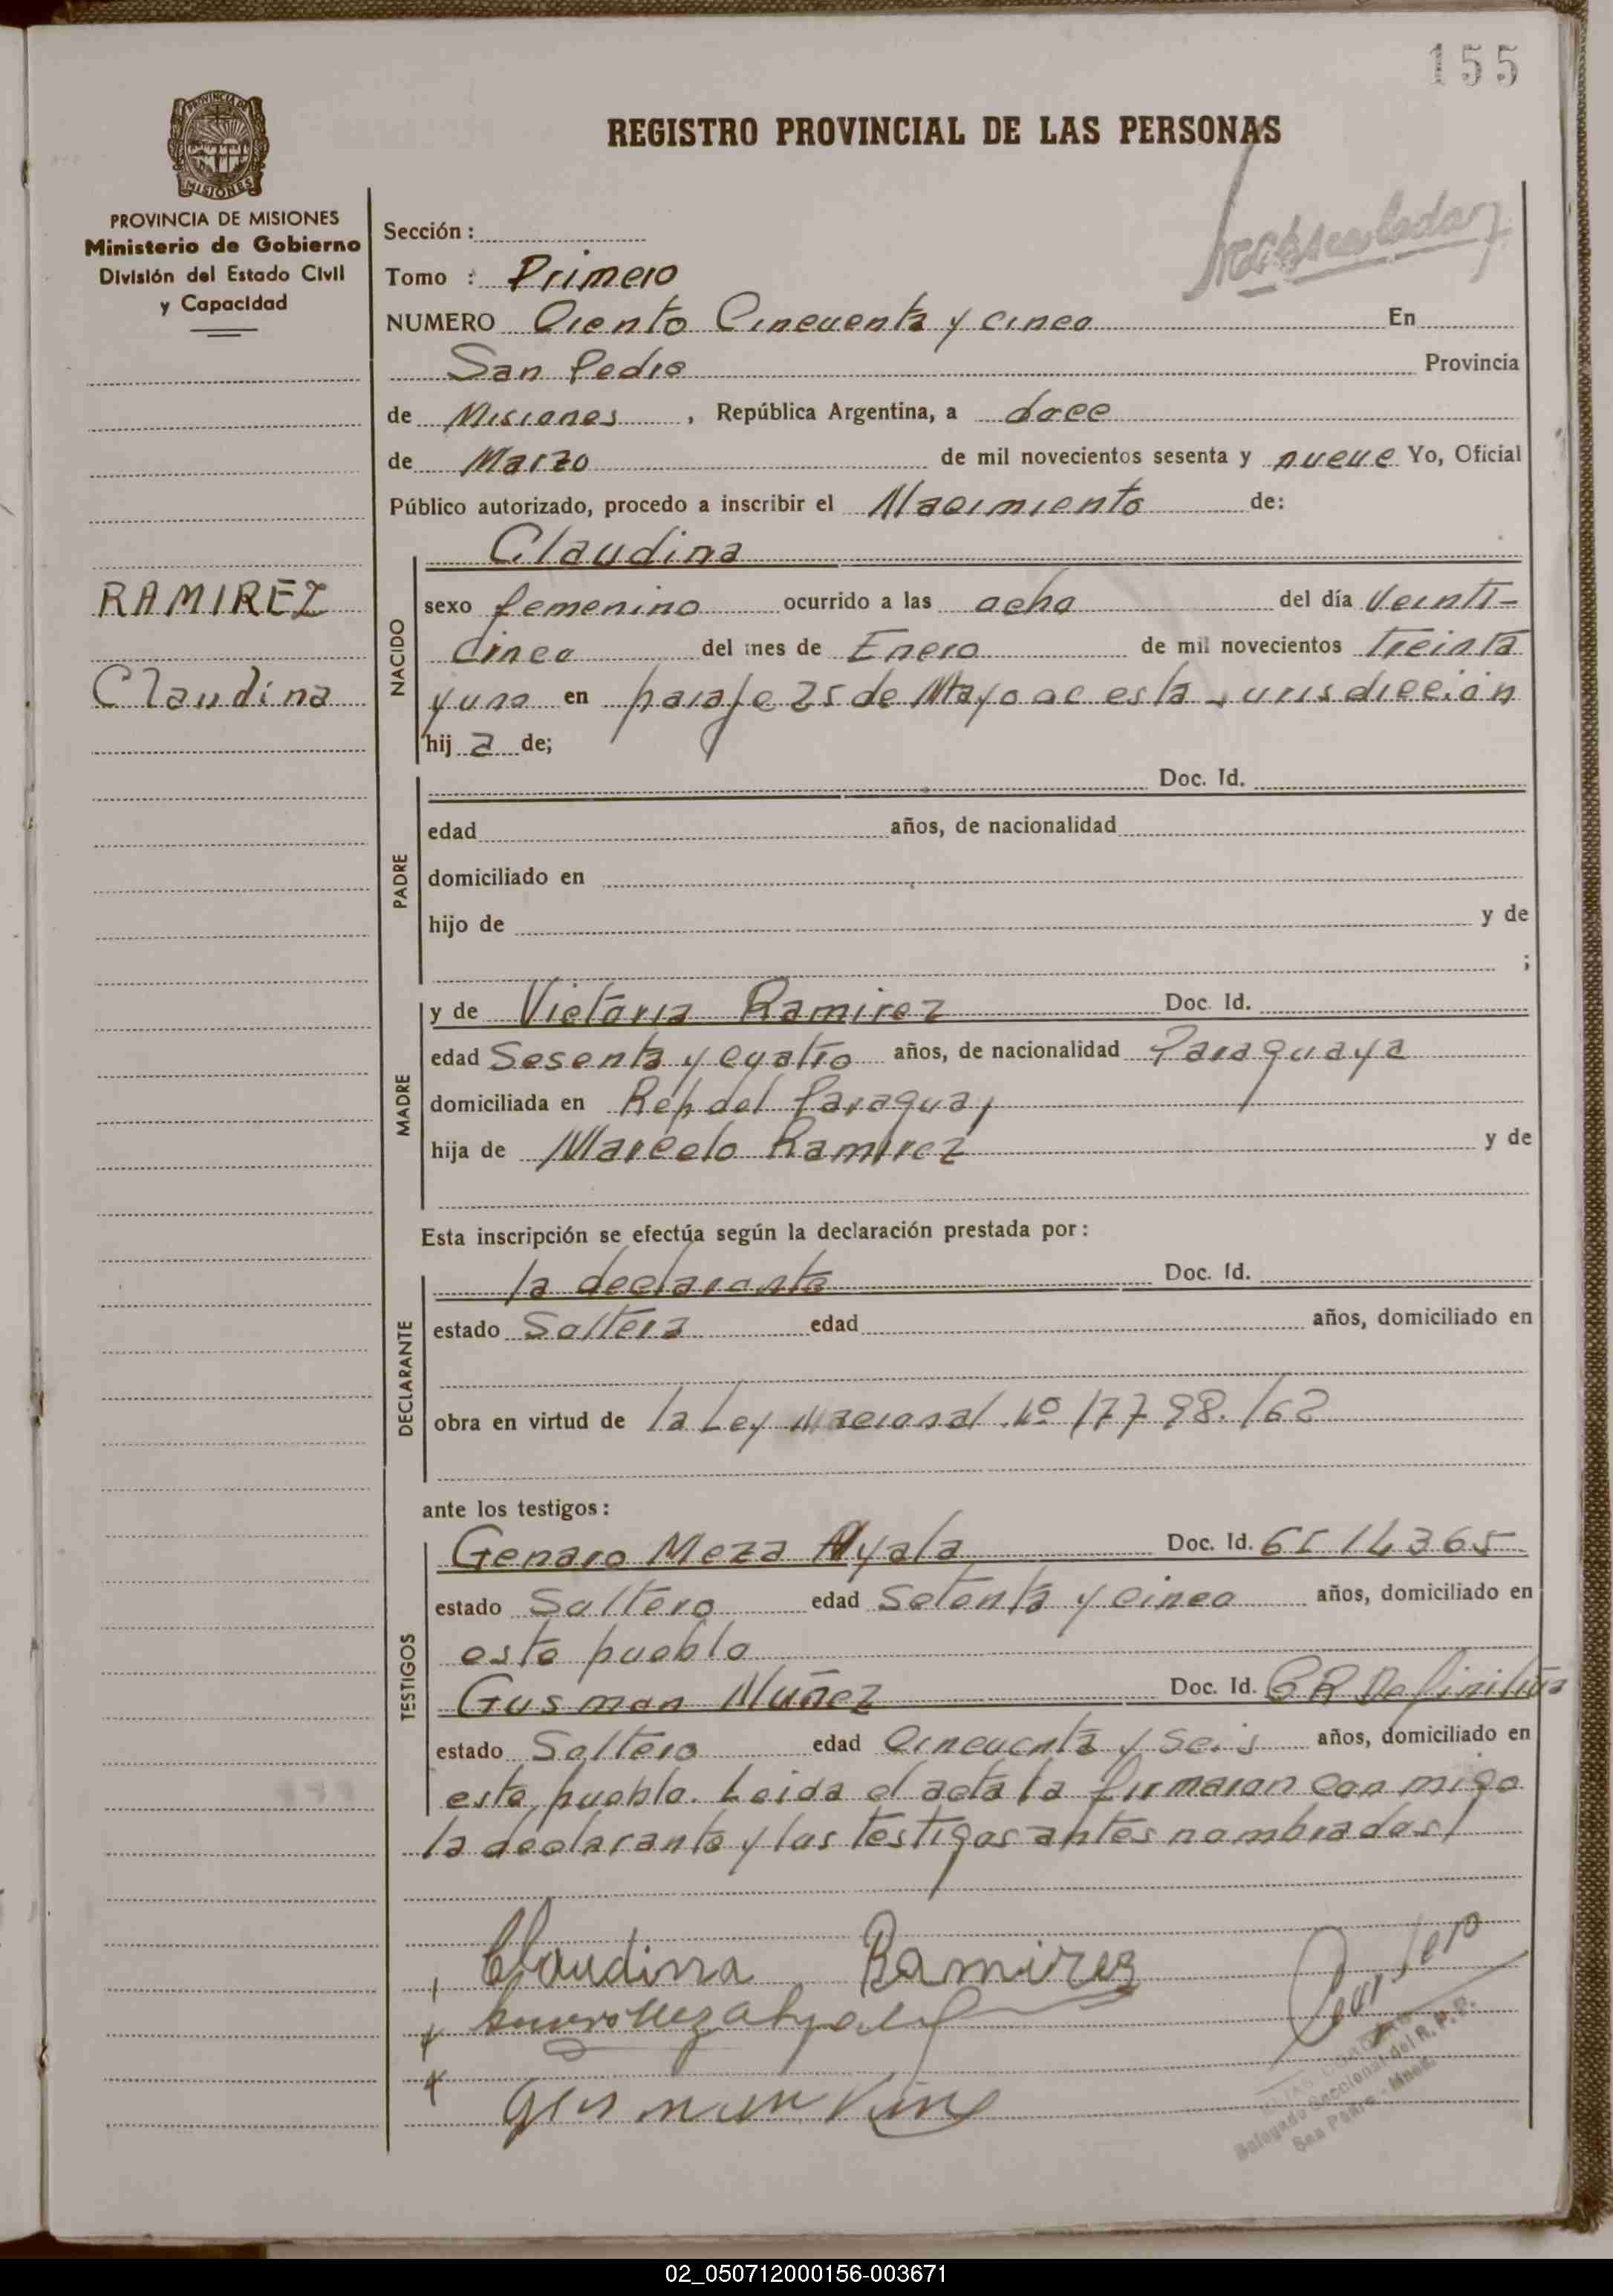 155
REGISTRO PROVINCIAL DE LAS PERSONAS
PROVINCIA DE
MISIONES
PROVINCIA DE MISIONES
Ministerio de Gobierno
División del Estado Civil
y Capacidad
Sección :
Tomo : Primero
NUMERO Ciento Cincuenta y cinco En
San Pedro Provincia
de Misiones , República Argentina, a doce
de Marzo de mil novecientos sesenta y nueve Yo, Oficial
Público autorizado, procedo a inscribir el Nacimiento de:
RAMIREZ
Claudina
NACIDO
Claudina
sexo femenino ocurrido a las ocho del día Veinti-
Cinco del mes de Enero de mil novecientos Treinta
y uno en paraje 25 de Mayo de esta jurisdicción
hij a de;
PADRE
Doc. Id.
edad años, de nacionalidad
domiciliado en
hijo de y de
;
MADRE
y de Victoria Ramirez Doc. Id.
edad Sesenta y cuatro años, de nacionalidad Paraguaya
domiciliada en Rep del Paraguay
hija de Marcelo Ramirez y de
Esta inscripción se efectúa según la declaración prestada por :
DECLARANTE
la declarante Doc. Id.
estado Soltera edad años, domiciliado en
obra en virtud de la Ley Nacional Nº 17798./68
ante los testigos :
TESTIGOS
Genaro Meza Ayala Doc. Id.
estado Soltero edad Setenta y cinco años, domiciliado en
este pueblo
Gusman Nuñez Doc. Id. CR Definitiva
estado Soltero edad Cincuenta y Seis años, domiciliado en
este pueblo. Leida el acta la firmaron con migo
la declarante y los testigos antes nombrados/
Claudina Ramirez
Delegado Seccional del R. P. P.
San Pedro - Mnes.
02_050712000156-003671